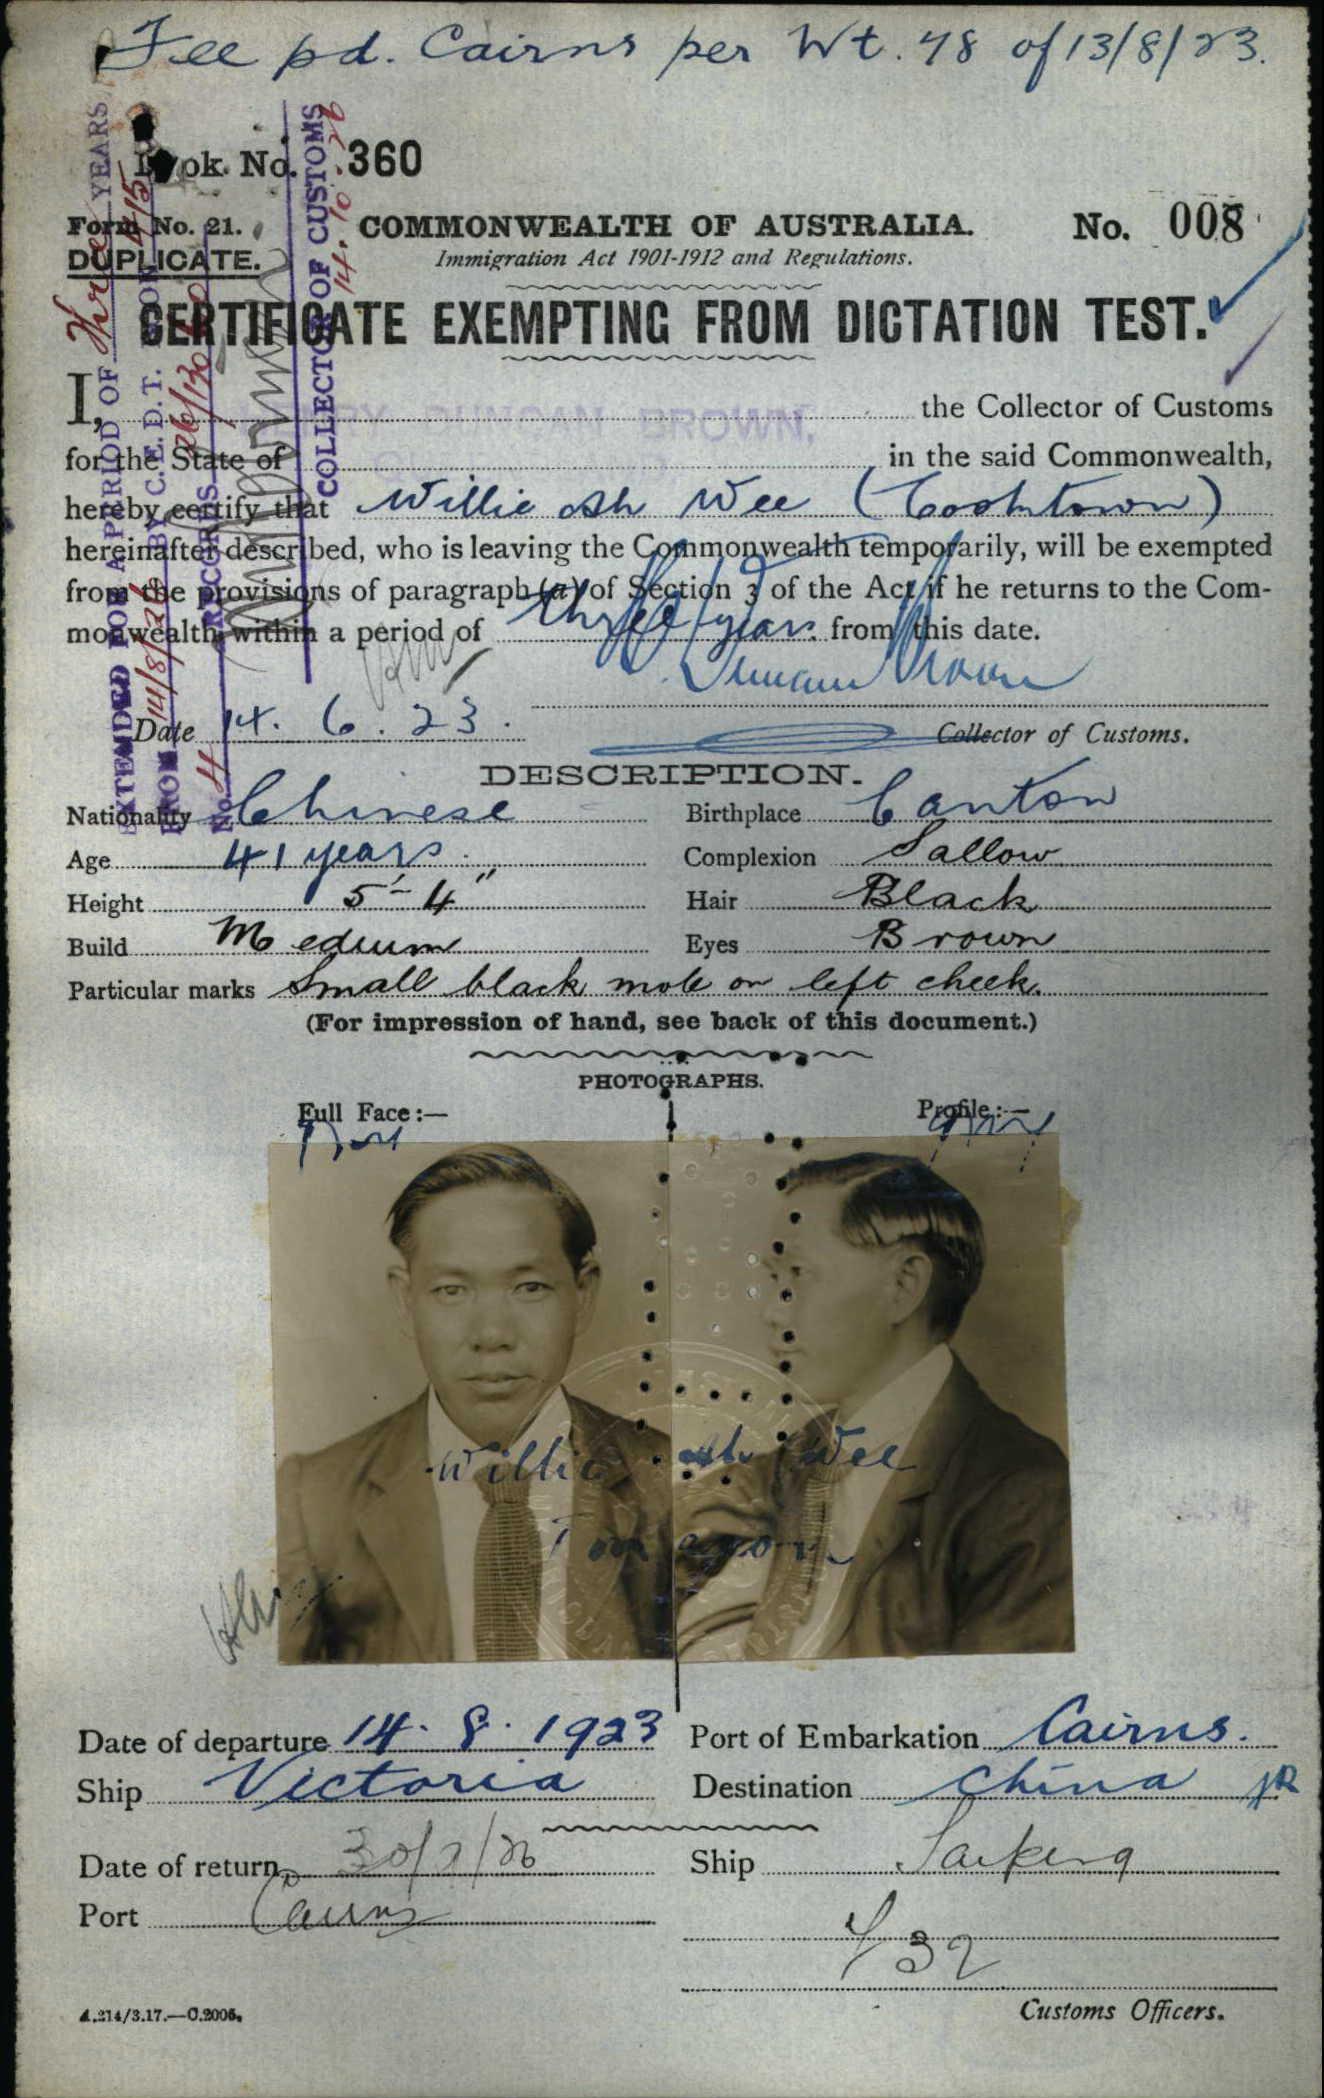 Fee pd. Cairns per Wt. 48 of 13/8/23.
Book No. 360
Form No. 21. COMMONWEALTH OF AUSTRALIA. No. 008
DUPLICATE. Immigration Act 1901-1912 and Regulations.
CERTIFICATE EXEMPTING FROM DICTATION TEST.
I, HENRY DUNCAN BROWN, the Collector of Customs
for the State of in the said Commonwealth,
hereby certify that Willie Ah Wee (Cooktown)
hereinafter described, who is leaving the Commonwealth temporarily, will be exempted
from the provisions of paragraph (a) of Section 3 of the Act if he returns to the Com-
monwealth within a period of three years from this date.
H. Duncan Brown
Date 14. 6. 23. Collector of Customs.
EXTENDED FOR A PERIOD OF Three YEARS
FROM 14/8/26 BY C.E.D.T. BOOK 415
No. 4 RECORDS 26/130
COLLECTOR OF CUSTOMS
14.10.26
DESCRIPTION.
Nationality Chinese Birthplace Canton
Age 41 years. Complexion Sallow
Height 5'-4" Hair Black
Build Medium Eyes Brown
Particular marks Small black mole on left cheek.
(For impression of hand, see back of this document.)
PHOTOGRAPHS.
Full Face:— Profile:—
Willie Ah Wee
Date of departure 14. 8. 1923 Port of Embarkation Cairns.
Ship Victoria Destination China JR
Date of return 30/7/26 Ship Taiping
Port Cairns
432
A.214/3.17.—C.2005. Customs Officers.